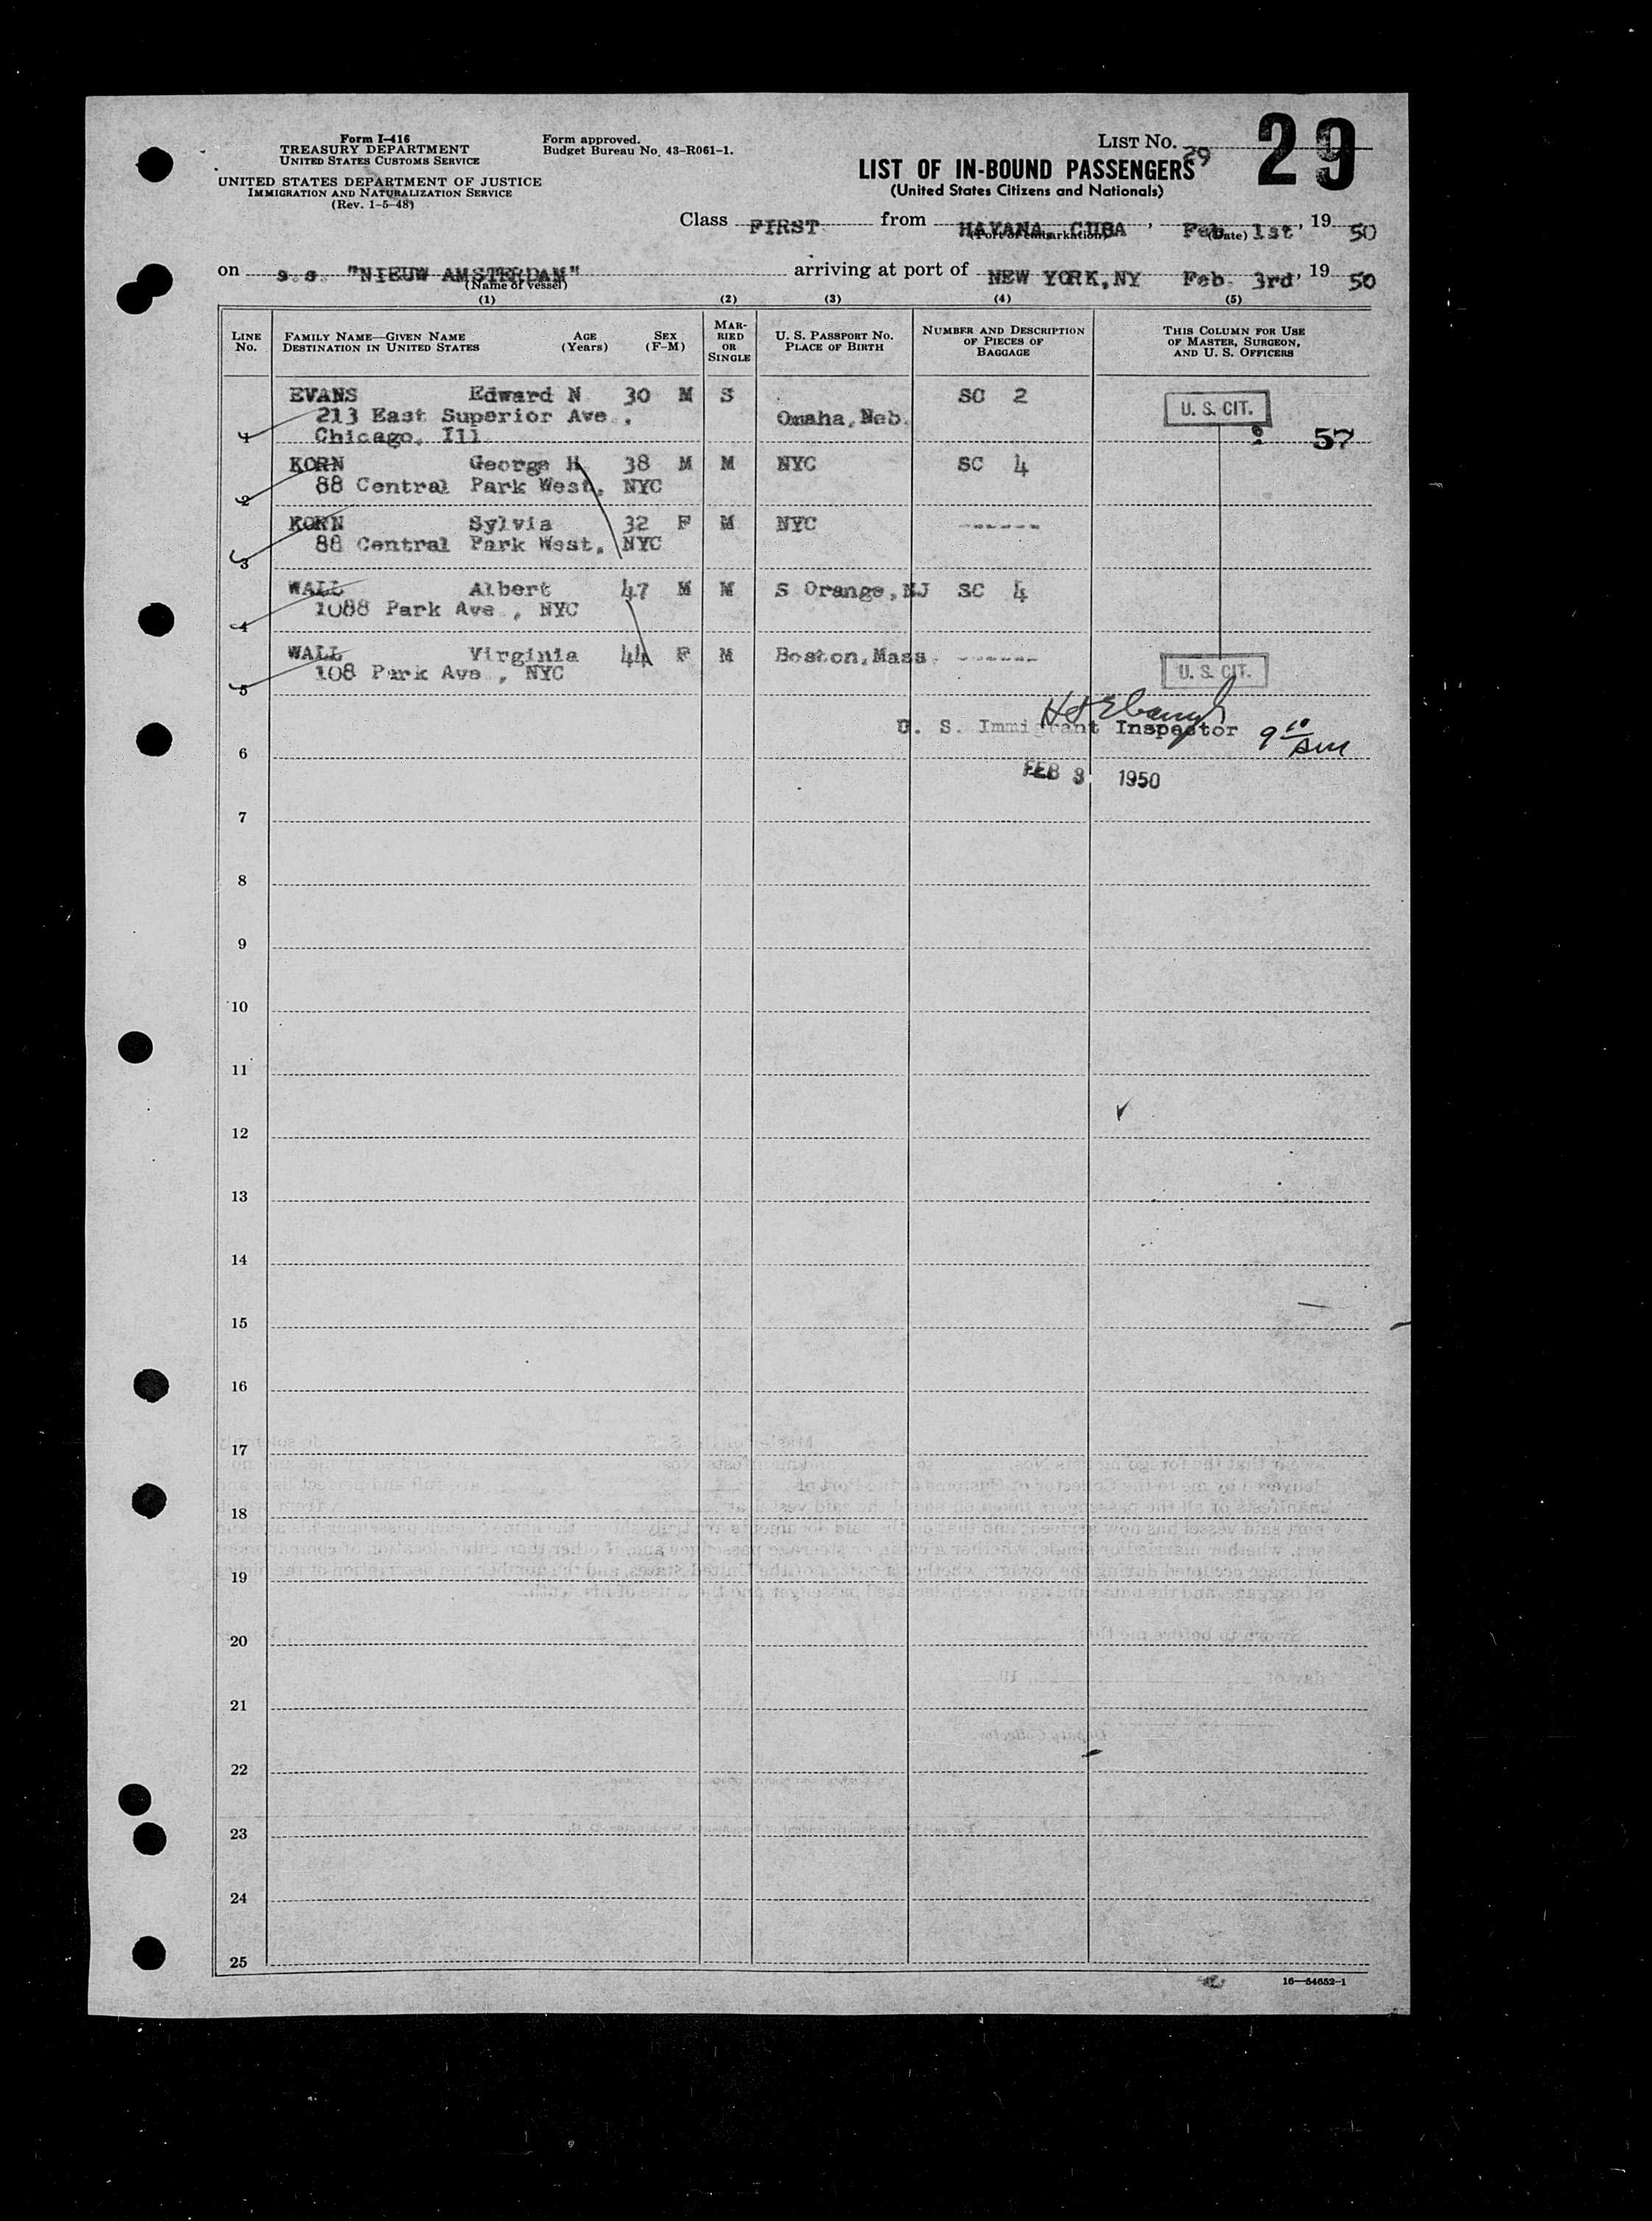 Form I-416
TREASURY DEPARTMENT
UNITED STATES CUSTOMS SERVICE
UNITED STATES DEPARTMENT OF JUSTICE
IMMIGRATION AND NATURALIZATION SERVICE
(Rev. 1-5-48)
Form approved.
Budget Bureau No. 43-R061-1.
LIST NO. 29
29
LIST OF IN-BOUND PASSENGERS
(United States Citizens and Nationals)
Class FIRST from HAVANA, CUBA, Feb. 1st, 19 50
(Port of embarkation) (Date)
on s.s. "NIEUW AMSTERDAM" arriving at port of NEW YORK,NY Feb. 3rd, 19 50
(Name of vessel)
(1) (2) (3) (4) (5)
LINE No. FAMILY NAME—GIVEN NAME DESTINATION IN UNITED STATES AGE (Years) SEX (F-M) MARRIED OR SINGLE U. S. PASSPORT NO. PLACE OF BIRTH NUMBER AND DESCRIPTION OF PIECES OF BAGGAGE THIS COLUMN FOR USE OF MASTER, SURGEON, AND U. S. OFFICERS
EVANS Edward N 30 M S SC 2 U. S. CIT.
213 East Superior Ave., Omaha, Neb.
1 Chicago, Ill 57
KORN George H 38 M M NYC SC 4
2 88 Central Park West, NYC
KORN Sylvia 32 F M NYC ------
3 88 Central Park West, NYC
WALL Albert 47 M M S Orange, NJ SC 4
4 1088 Park Ave., NYC
WALL Virginia 44 F M Boston, Mass. ------ U. S. CIT.
5 108 Park Ave., NYC
U. S. Immigrant Inspector 9 10 AM
6
FEB 3 1950
7
8
9
10
11
12
13
14
15
16
17
18
19
20
21
22
23
24
25
16—54652-1